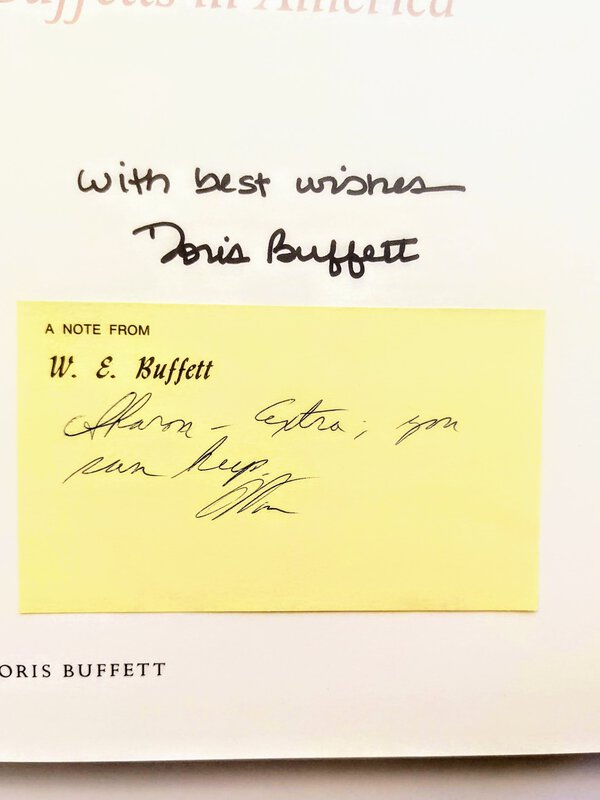 Buffetts in America
with best wishes
Doris Buffett
A NOTE FROM
W. E. Buffett
Sharon - Extra; you
can keep.
ORIS BUFFETT